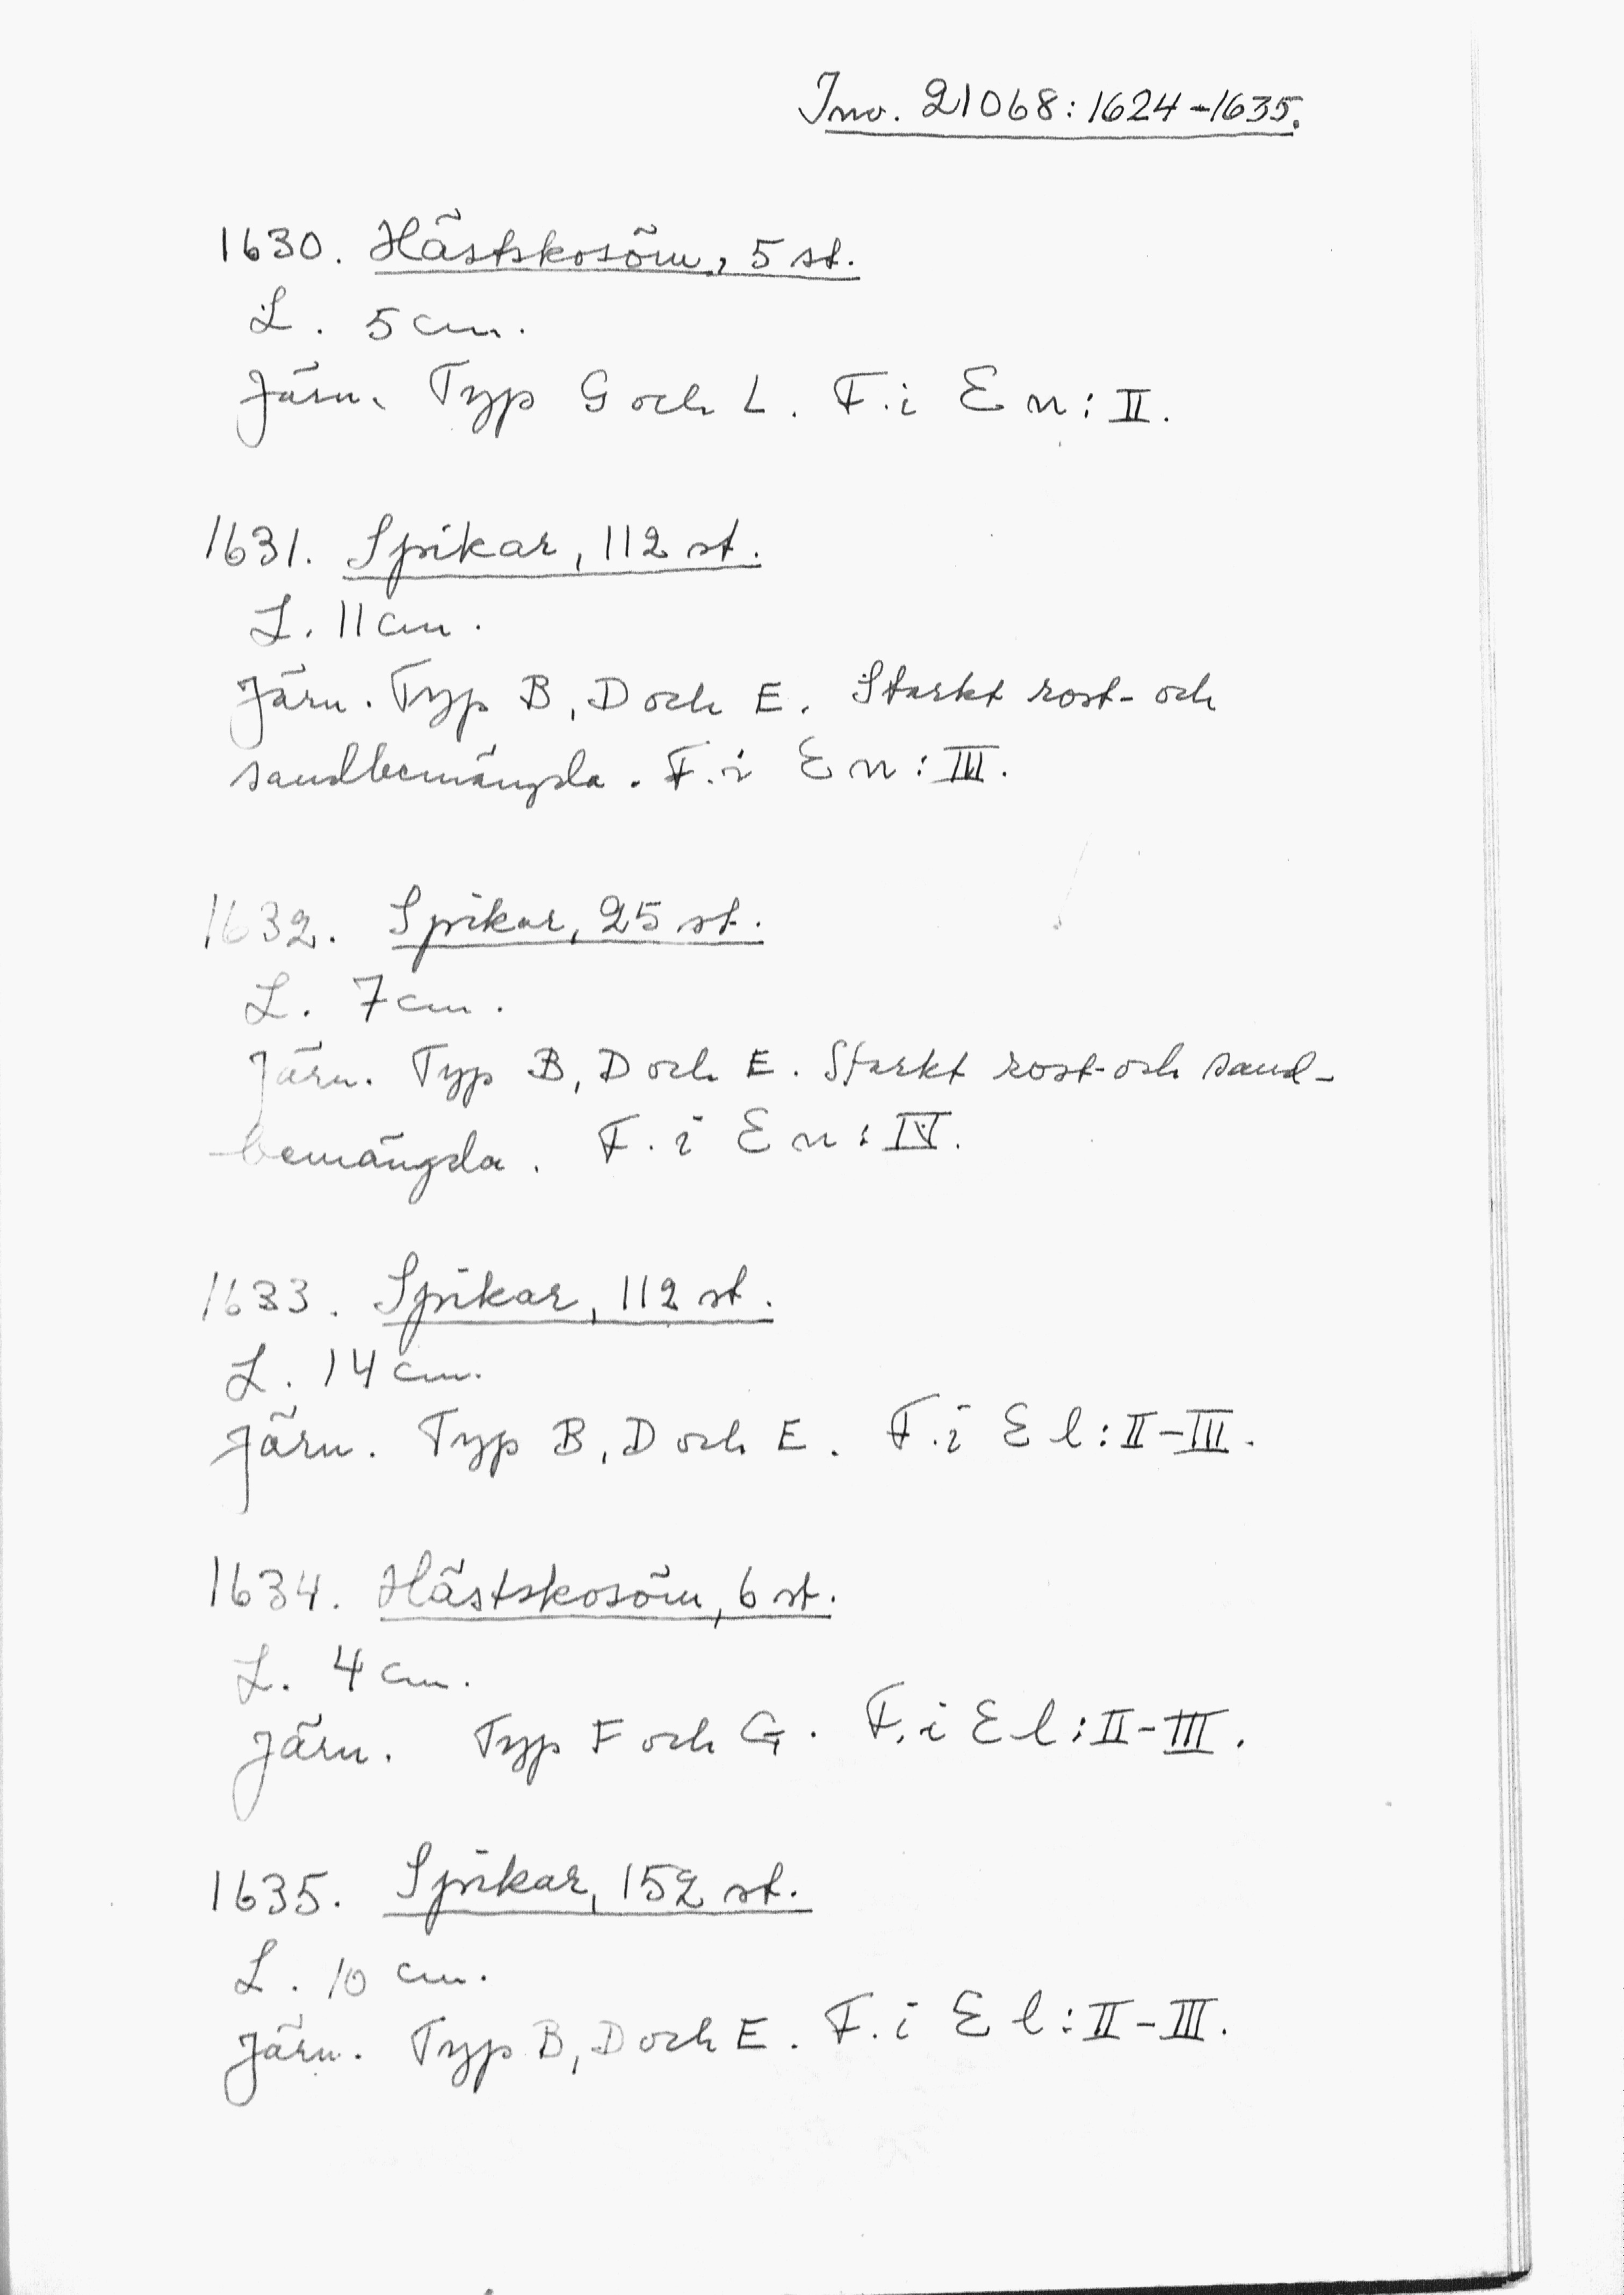 Inv. 21068:1624-1635.
1630. Hästskosöm, 5 st.
L. 5 cm.
Järn. Typ G och L. F. i E n: II.
1631. Spikar, 112 st.
L. 11 cm.
Järn. Typ B, D och E. Starkt rost- och
sandbemängda. F. i E n: III.
1632. Spikar, 25 st.
L. 7 cm.
Järn. Typ B, D och E. Starkt rost- och sand-
bemängda. F. i E n: IV.
1633. Spikar, 112 st.
L. 14 cm.
Järn. Typ B, D och E. F. i E l: II-III.
1634. Hästskosöm, 6 st.
L. 4 cm.
Järn. Typ F och G. F. i E l: II-III.
1635. Spikar, 152 st.
L. 10 cm.
Järn. Typ B, D och E. F. i E l: II-III.